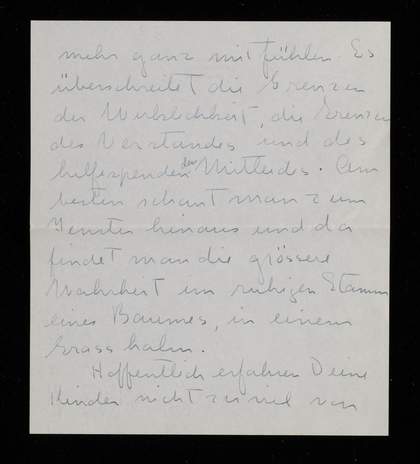 mehr ganz mitfühlen. Es
überschreitet die Grenzen
der Wirklichkeit, die Grenzen
des Verstandes und des
hilfespendenden Mitleids. Am
besten schaut man zum
Fenster hinaus und da
findet man die grössere
Wahrheit im ruhigen Stamm
eines Baumes, in einem
Grasshalm.
Hoffentlich erfahren Deine
Kinder nicht zuviel von